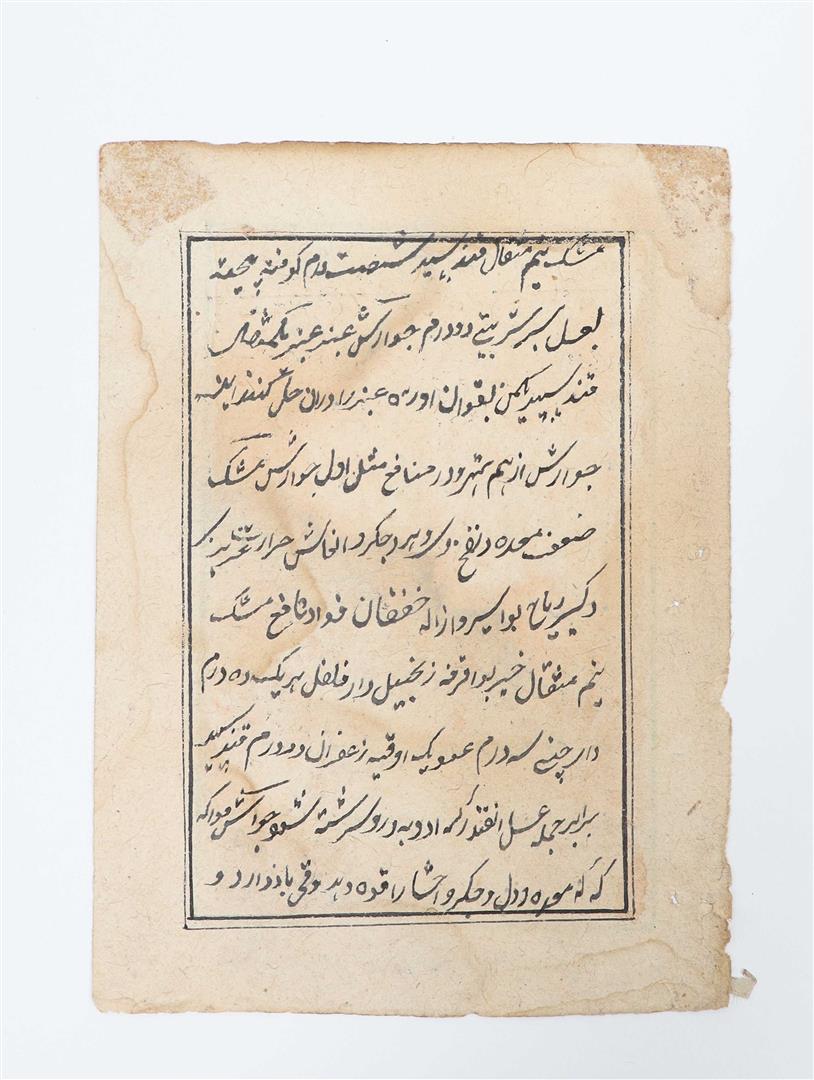 مشک نیم مثقال قند سپید شصت درم کوفته بیخته
بعسل بسرشند شربتی دو درم جوارش عنبر عنبر یکمثقال
قند سپید یکمن بقوام اورده عنبر را دران حل کنند این
جوارش از هم بهتر و در منافع مثل اول جوارش مشک
ضعف معده و نفخ و جگر و انعاش حرارت غریزی
ریاح بواسیر و ازاله خفقان فواد نافع مشک
نیم مثقال خیربوا قرفه زنجبیل دارفلفل هریک ده درم
دارچینی سه درم عود یک اوقیه زعفران دو درم قند سپید
برابر جمله عسل انقدر که ادویه درو سرشته شود جوارش فواکه
که معده و دل و جگر و احشا را قوه دهد و قی باز دارد و